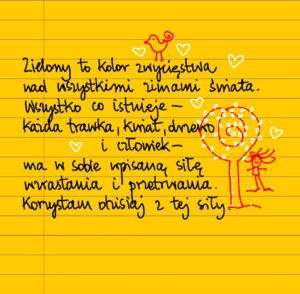 Zielony to kolor zwycięstwa
nad wszystkimi zimami świata.
Wszystko co istnieje –
każda trawka, kwiat, drzewo
i człowiek –
ma w sobie wpisaną siłę
wzrastania i przetrwania.
Korzystam dzisiaj z tej siły